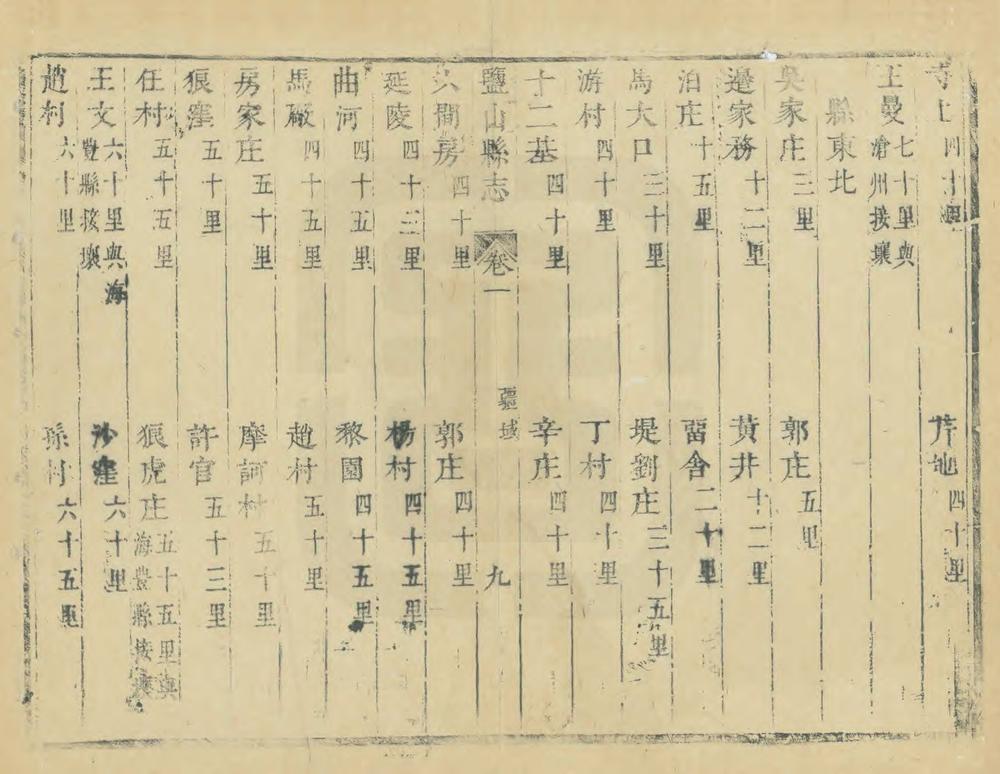 寺上 四十里 芹地 四十里
王曼 七十里與滄州接壤
縣東北
吳家庄 三里 郭庄 五里
邊家務 十二里 黃井 十二里
泊庄 十五里 畱舍 二十里
馬大口 三十里 堤劉庄 三十五里
游村 四十里 丁村 四十里
十二基 四十里 辛庄 四十里
鹽山縣志 卷一 疆域 九
間房 四十里 郭庄 四十里
延陵 四十三里 楊村 四十五里
曲河 四十五里 黎園 四十五里
馬厰 四十五里 趙村 五十里
房家庄 五十里 摩訶村 五十里
狼窪 五十里 許官 五十三里
任村 五十五里 狼虎庄 五十五里與海豊縣接壤
王文 六十里與海豊縣接壤 沙窪 六十里
趙村 六十里 孫村 六十五里